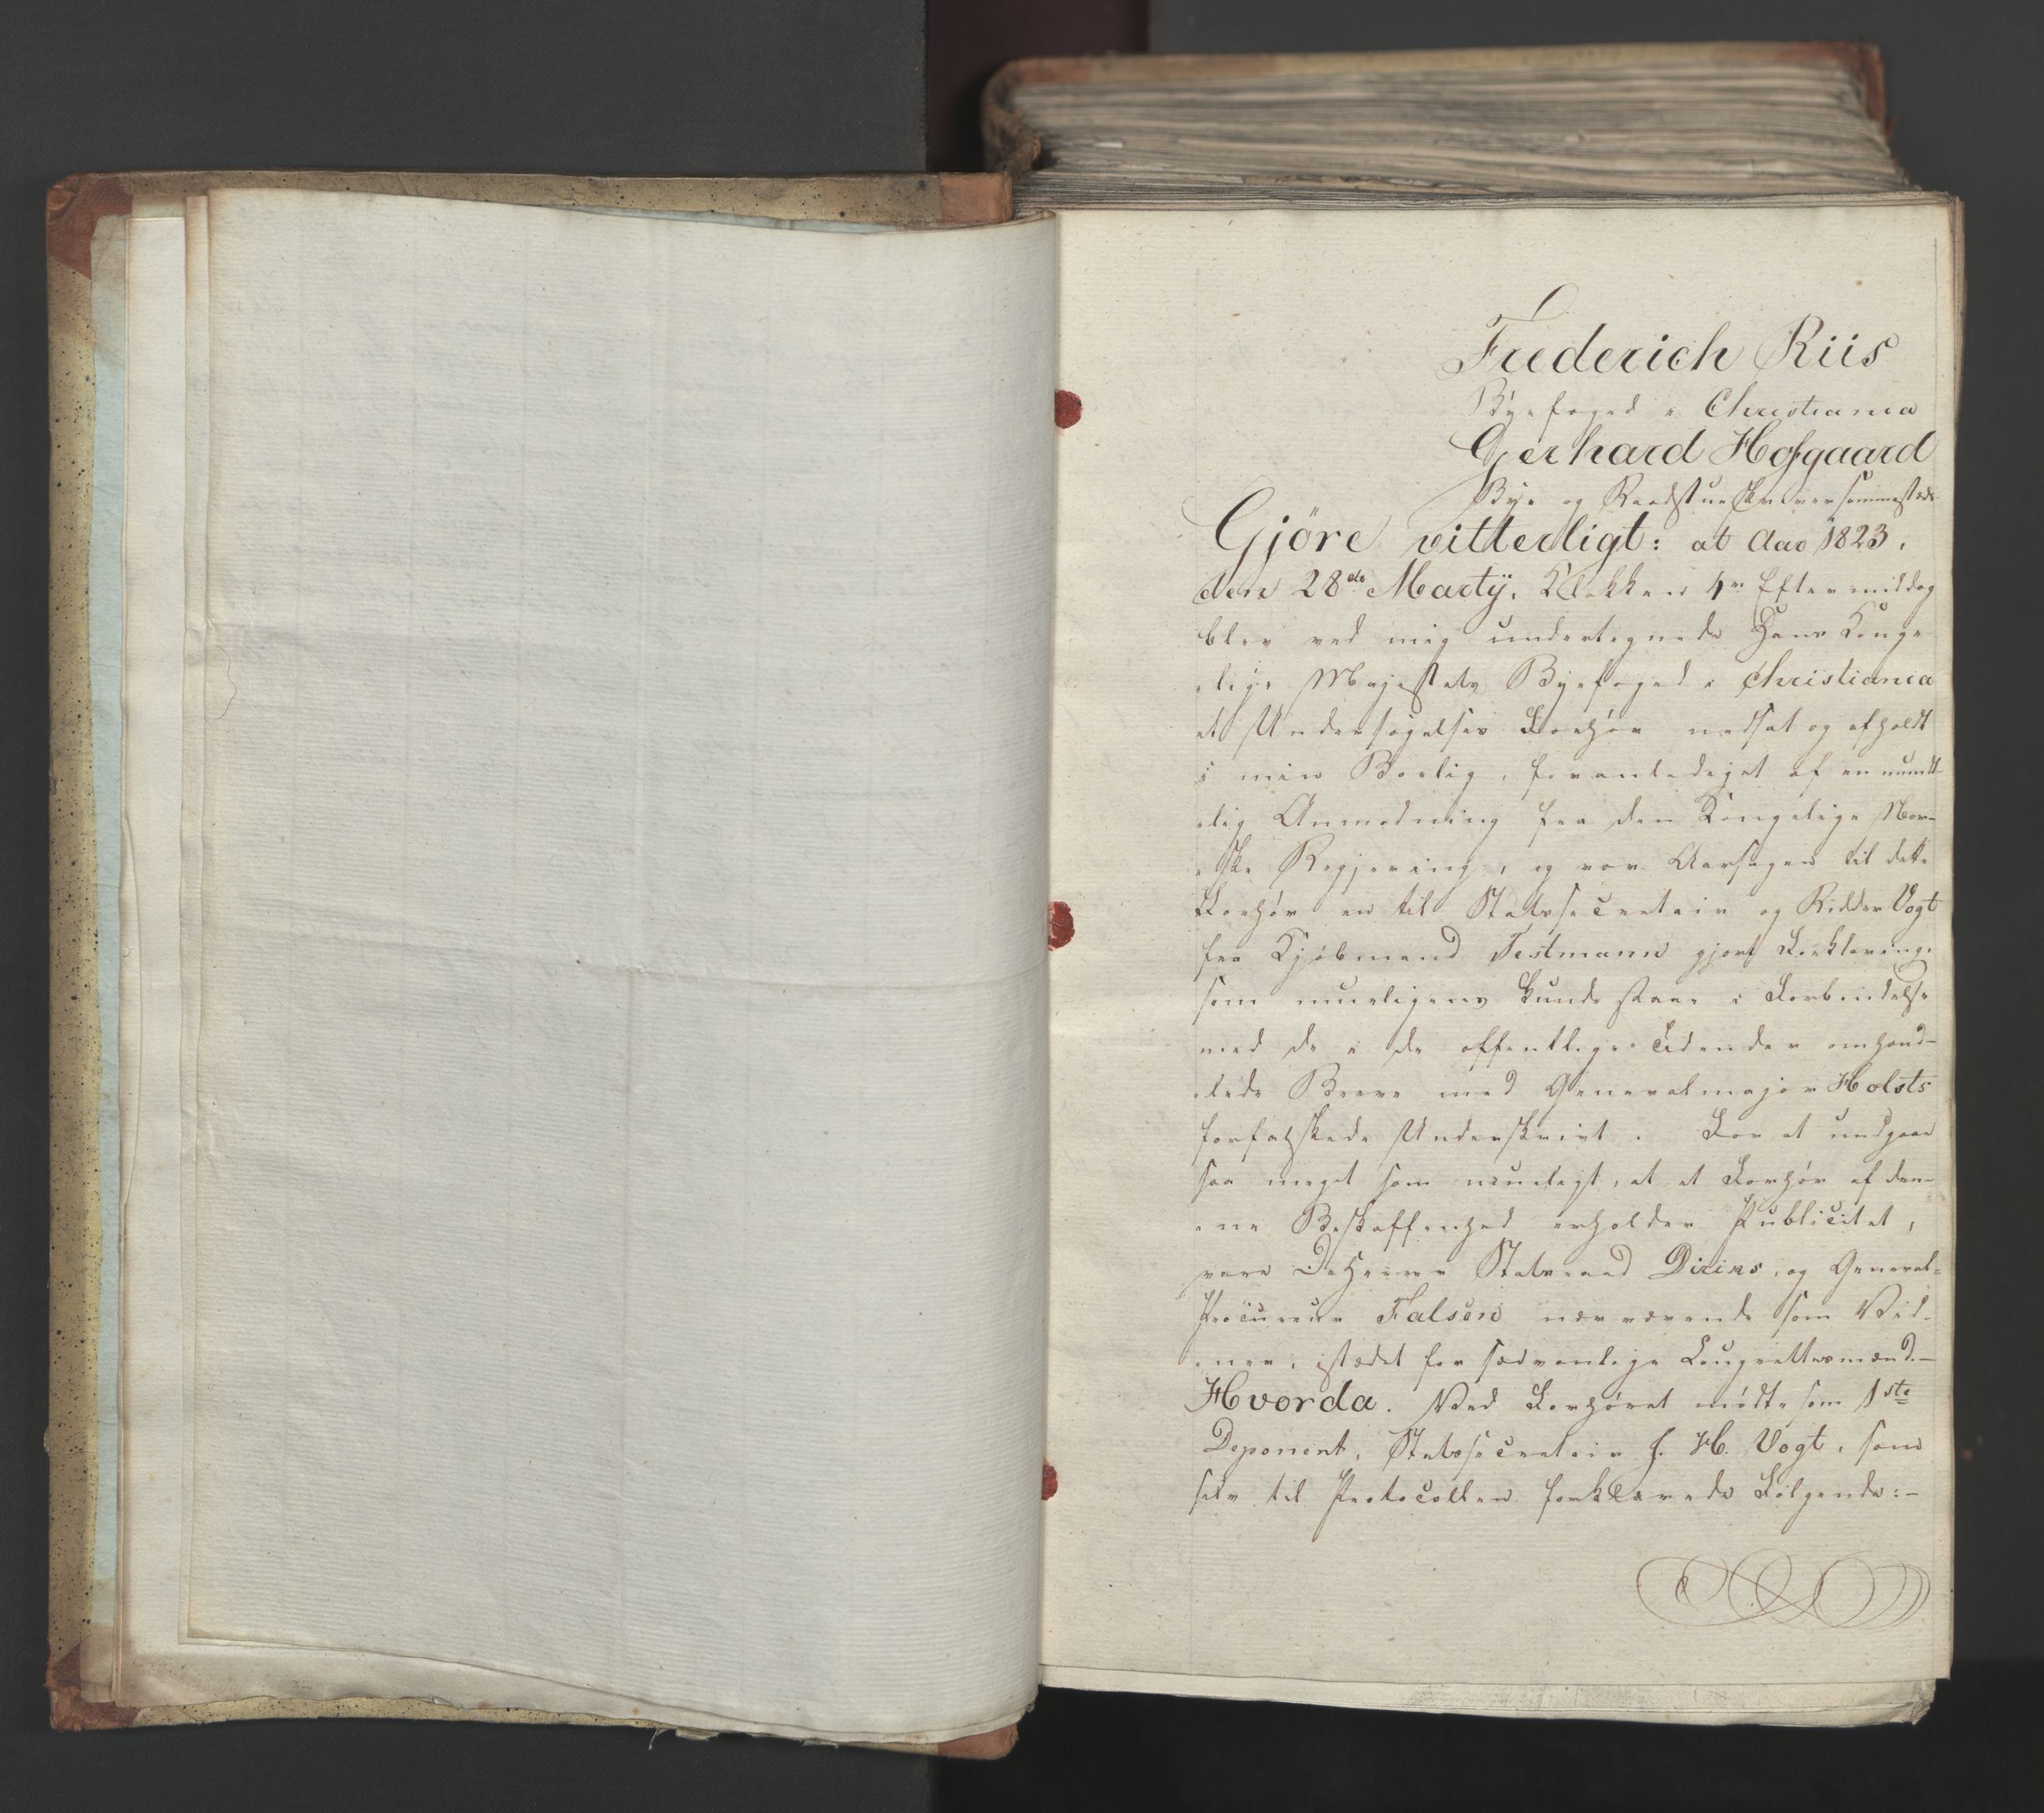 Frederich Riis
Byefoged i Christiania
Gerhard Hofgaard
Bye og Raadstueskriver sammesteds
Gjöre vitterligt: at Aar 1823,
den 28de Martÿ, Klokken 4re Eftermiddag
blev ved mig undertegnede Hans Konge-
-lige Majestets Byefoged i Christiania
et Undersøgelses Forhør nedsat og afholdt
i min Boelig, foranlediget af en mundt-
-lig Anmodning fra den Kongelige Nor-
-ske Regjering, og var Aarsagen til dette
Forhør en til Statssecretair og Ridder Vogt
fra Kjøbmand Testmann gjort Forklaring,
som mueligens kunde staae i Forbindelse
med de i de offentlige Tidender omhand-
-lede Breve med Generalmajor Holsts
forfalskede Underskrivt. For at undgaae
saa meget som mueligt, at et Forhør af den-
-ne Beskaffenhed erholder Publicitet,
vare DeHerrer Statsraad Diriks, og General-
Procureur Falsen nærværende som Vid-
-ner, istædet for sædvanlige Laugrettesmænd.—
Hvorda. Ved Forhøret mødte som 1ste
Deponent, Statssecretair J. H. Vogt, som
selv til Protocollen forklarede Følgende:—